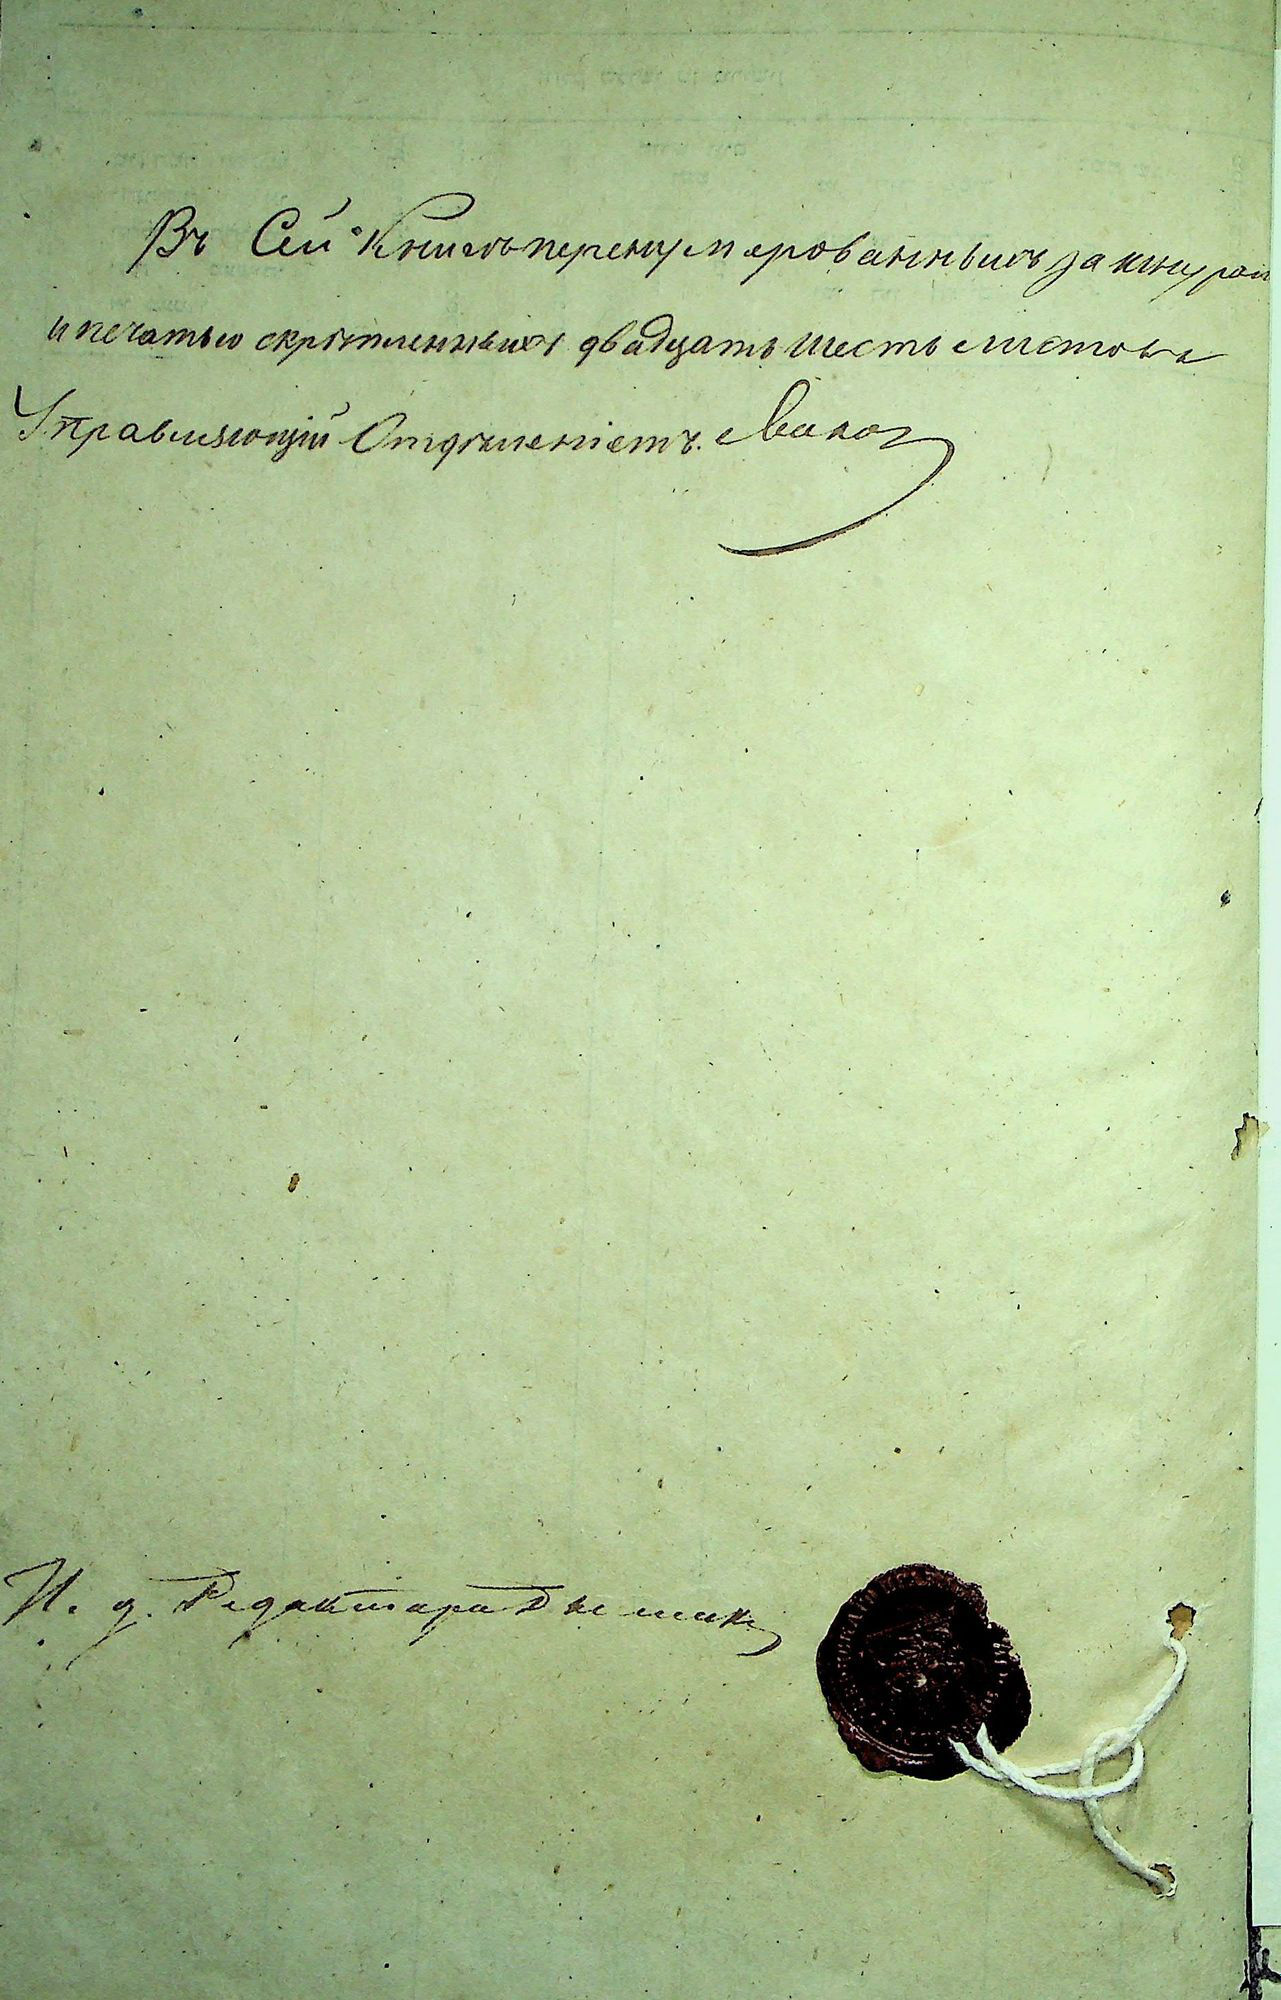 Въ Сей Книгѣ перенумерованныхъ за шнуром
и печатью скрѣпленныхъ двадцать шесть листовъ
Управляющій Отдѣленіемъ
И. д. Редактора